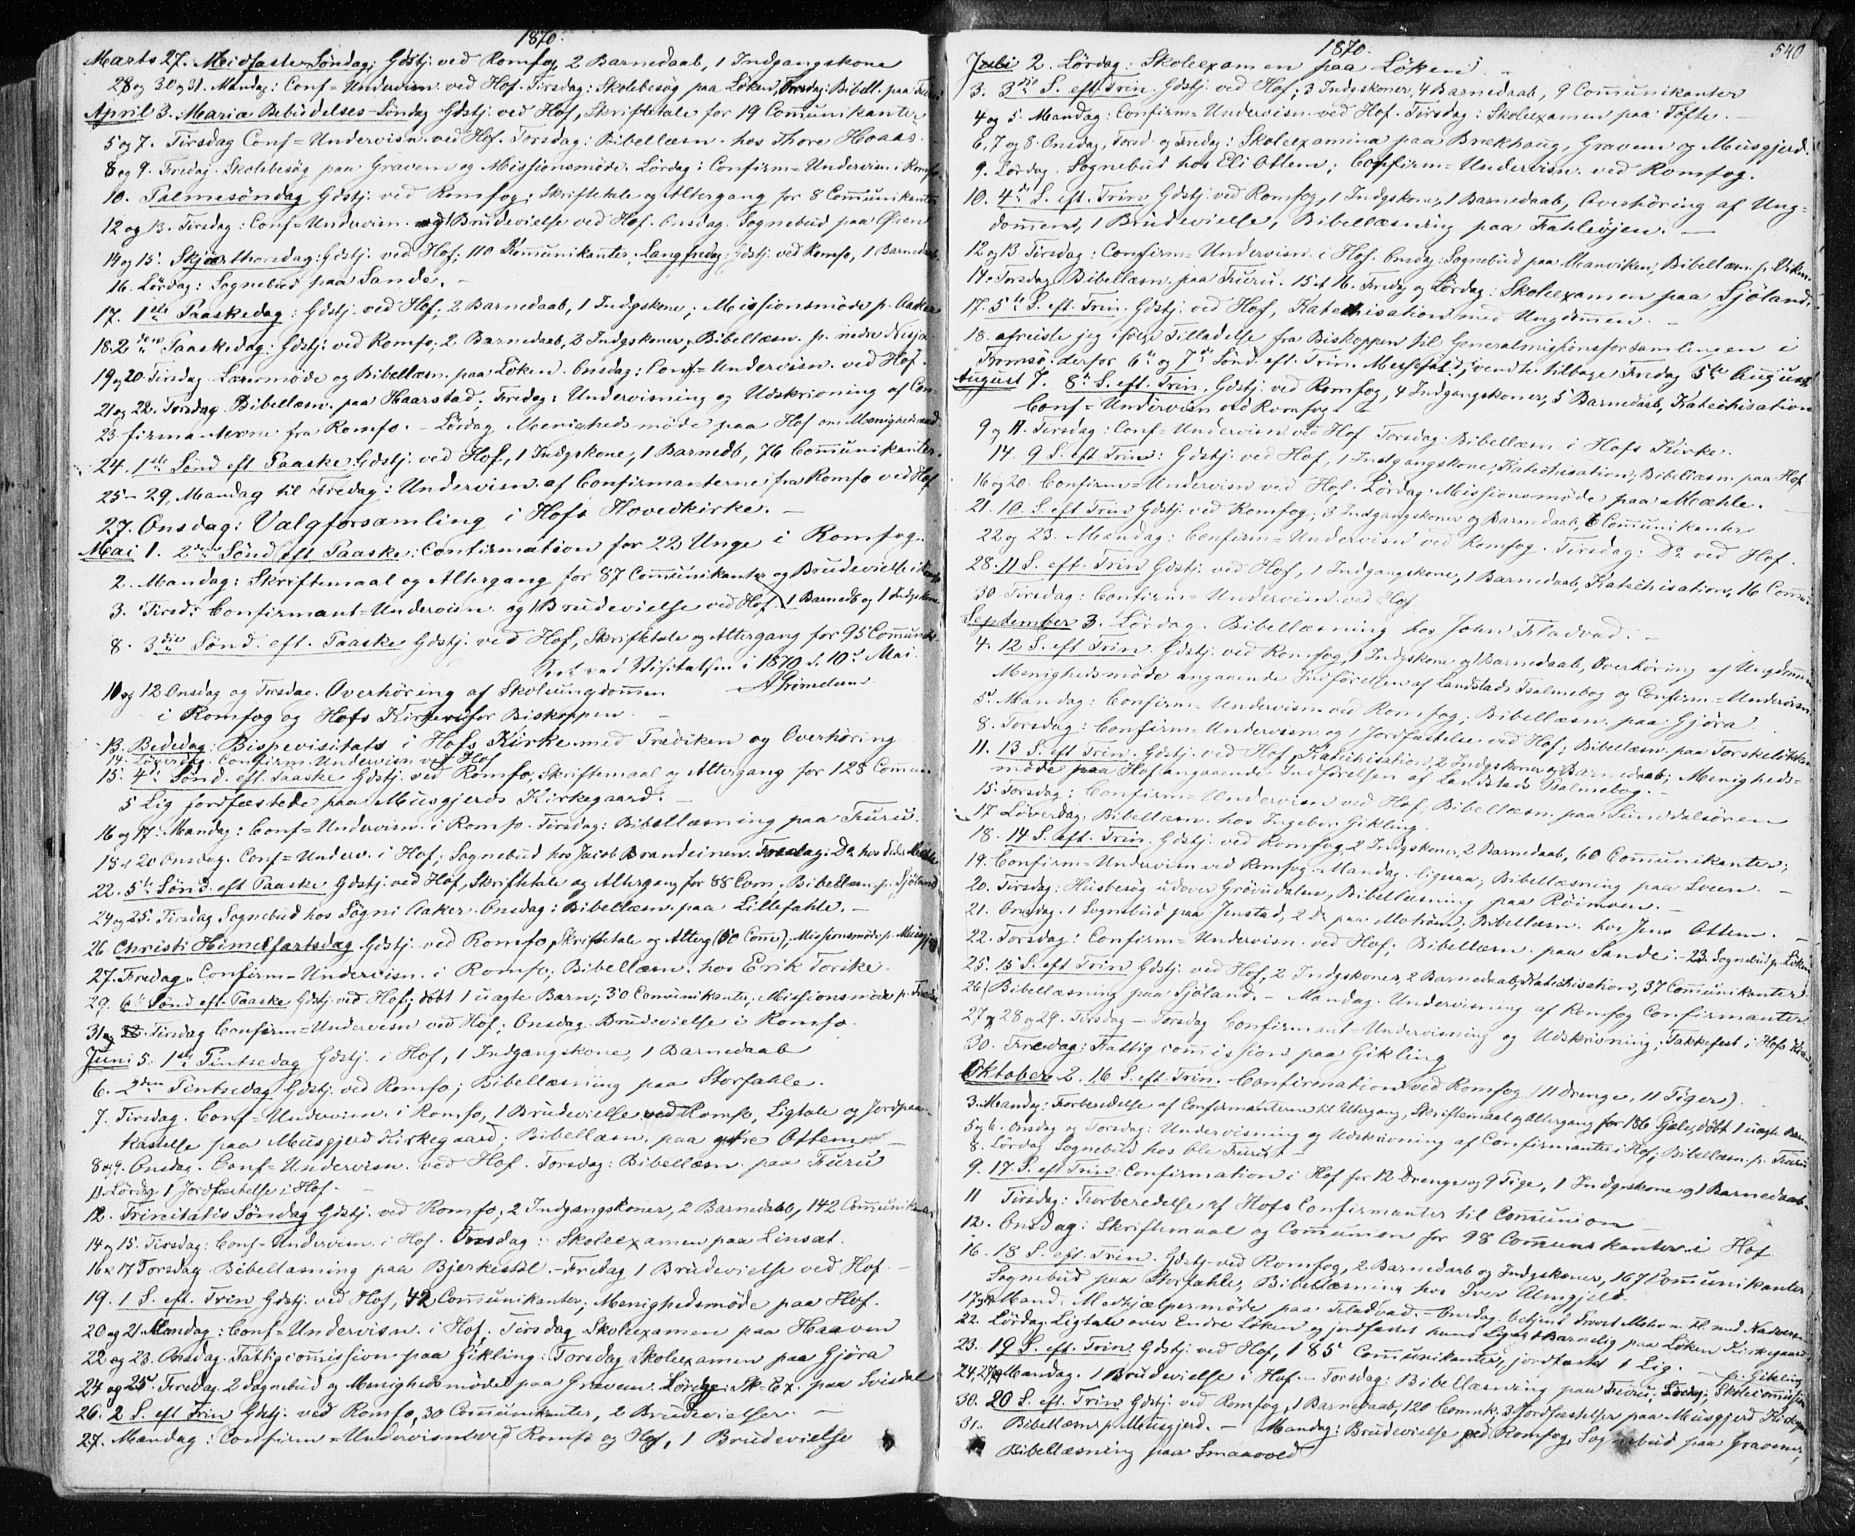 1870.
Marts 27. Midfaste Søndag: Gdstj. ved Romfog, 2 Barnedaab, 1 Indgangskone
28 og 30 og 31. Mandag: Conf=Undervisn. ved Hof. Tirsdag: Skolebesøg paa Løken, Torsdag: Bibell. paa
April 3. Mariæ Bebudelses-Søndag Gdstj. ved Hof, Skriftetale for 19 Comunikanter
5 og 7. Tirsdag Conf=Undervisn. ved Hof. Torsdag: Bibellæsn. hos Thore Hoaas.
8 og 9. Fredag. Skolebesøg paa Gravem og Missionsmøde. Lørdag: Confirm=Undervisn. i Romfo.
10. Palmesøndag Gdstj. ved Romfog; Skriftetale og Altergang for 8 Communikanter
12 og 13. Tirsdag: Conf=Undervisn. og 1 Brudevielse ved Hof. Onsdag. Sognebud paa Gran
14 og 15. Skjærthorsdag: Gdstj. ved Hof; 110 Komunikanter. Langfredag: Gdstj. ved Romfo, 1 Barnedaab
16. Lørdag: Sognebud paa Sande.
17. 1ste Paaskedag: Gdstj. ved Hof; 2 Barnedaab, 1 Indgskone; Missionsmøde p. Aaker
18. 2den Paaskedag: Gdstj. ved Romfo, 2 Barnedaab, 2 Indgskoner; Bibellæsn. p. nedre Nisja
19 og 20 Tirsdag. Læsermøde og Bibellæsn. paa Løken. Onsdag: Conf=Undervisn. ved Hof.
21 og 22. Torsdag. Bibellæsn. paa Haarstad; Fredag: Undervisning og Udskrivning af Con
23. firmanterne fra Romfo. - Lørdag Menighedsmøde paa Hof om Menighedsraad
24. 1ste Sønd eft Paaske Gdstj. ved Hof, 1 Indgskone, 1 Barnedb, 76 Communikanter.
25-29. Mandag til Fredag: Undervisn. af Confirmanterne fra Romfo ved Hof
27. Onsdag: Valgforsamling i Hofs Hovedkirke. -
Mai 1. 2den Sønd eft Paaske: Confirmation for 22 Unge i Romfog
2. Mandag: Skriftemaal og Altergang for 87 Communikanter og Brudevielse i Romfo
3. Tirsd: Confirmant=Undervisn. og 1 Brudevielse ved Hof. 1 Barnedb og 1 Indgskone
8. 3die Sønd. eft. Paaske Gdstj. ved Hof, Skriftetale og Altergang for 95 Comunik
Seet ved Visitatsen i 1870 d. 10d Mai.
AGrimelund
11 og 12 Onsdag og Torsdag. Overhøring af Skoleungdommen
i Romfog og Hofs Kirker for Biskoppen
13. Bededag: Bispevisitats i Hofs Kirke med Prædiken og Overhøring
14. Løverdag. Confirm. Undervisn ved Hof
15. 4de Sønd. eft. Paaske Gdstj. ved Romfo, Skriftemaal og Altergang for 128 Commun
5 Lig jordfæstede paa Musgjerds Kirkegaard. -
16 og 17. Mandag: Conf=Undervisn. i Romfo. Tirsdag: Bibellæsning paa Furu.
18 og 20 Onsdag. Conf=Underv. i Hof; Sognebud hos Jacob Brandeinen. Fredag: Do hos
22. 5te Sønd. eft Paaske Gdstj. ved Hof, Skriftetale og Altergang for 88 Com. Bibellæsn. p. Sjøland
24 og 25. Tirsdag Sognebud hos Sögni Aaker. Onsdag: Bibellæsn. paa Lillefahle. -
26 Christi Himelfartsdag Gdstj. ved Romfo, Skriftetale og Alterg (50 Com), Missionsmøde p. Musgjerd
27. Fredag. Confirm=Undervisn. i Romfo; Bibellæsn. hos Erik Torske.
29. 6te Sønd eft. Paaske Gdstj. ved Hof; døbt 1 uægte Barn; 30 Comunikanter, Missionsmøde p.
31 og Tirsdag Confirm=Undervisn ved Hof; Onsdag. Brudevielse i Romfo.
Juni 5. 1ste Pintsedag Gdstj. i Hof, 1 Indgangskone, 1 Barnedaab
6. 2den Pintsedag Gdstj. ved Romfo; Bibellæsning paa Storfahle.
7. Tirsdag. Conf=Undervisn. i Romfo, 1 Brudevielse ved Romfo, Ligtale og Jordpaa=
kastelse paa Musgjerd Kirkegaard; Bibellæsn. paa øvre Ottem -
8 og 9. Onsdag. Conf=Undervisn. ved Hof. Torsdag: Bibellæsn. paa Furu
11. Lørdag 1 Jordfæstelse i Hof. -
12. Trinitatis Søndag Gdstj. ved Romfo; 2 Indgangskoner, 2 Barnedaab, 142 Communikanter
14 og 15. Tirsdag: Conf=Undervisn. i Hof. Onsdag: Skoleexamen paa Linset.
16 & 17 Torsdag Bibellæsning paa Bjerkestøl. - Fredag 1 Brudevielse ved Hof. -
19. 1 S. eft. Trin Gdstj. ved Hof, 42 Communikanter; Menighedsmøde paa Hof.
20 og 21. Mandag: Conf=Undervisn. i Hof; Tirsdag Skoleexamen paa Haaven
22 og 23. Onsdag. Fattigcommission paa Gikling: Torsdag Skoleexamen paa Gjøra
24 og 25 Fredag. 2 Sognebud og Menighedsmøde paa Gravem. Lørdag: Sk-Ex. paa Svisdal
26. 2 S. eft Trin Gdstj. ved Romfo, 30 Communikanter, 2 Brudevielser. -
27. Mandag: Confirm=Undervisn ved Romfo og Hof, 1 Brudevielse
1870.
540
Juli 2. Lørdag: Skoleexamen paa Løken
3. 3die S. eft. Trin. Gdstj. ved Hof; 3 Indgskoner, 4 Barnedaab, 9 Communikanter
4 og 5. Mandag: Confirm=Undervisn. ved Hof. Tirsdag: Skoleexamen paa Tofte. -
6, 7 og 8. Onsdag, Torsd og Fredag: Skoleexamina paa Brekhaug, Gravem og Musgjerd.
9. Lørdag. Sognebud hos Eli Ottem; Confirm=Undervisn. ved Romfog.
10. 4de S. eft. Trin Gdstj. ved Romfog, 1 Indgskone, 1 Barnedaab, Overhøring af Ung=
dommen, 1 Brudevielse, Bibellæsning paa Fahleøjen. -
12 og 13 Tirsdag: Confirm=Undervisn. i Hof. Onsdag: Sognebud paa Manviken; Bibellæsn. p.
14. Torsdag Bibellæsn. paa Furu. 15 & 16. Fredag og Lørdag: Skoleexamen paa Sjøland.
17. 5te S. eft. Trin. Gdstj. ved Hof, Katechisation med Ungdommen. -
18. afreiste jeg ifølge Tilladelse fra Biskoppen til Generalmissionsforsamlingen i
Tromsø; derfor 6te og 7de Sønd. eft. Trin. Messefald; vendte tilbage Fredag 5te August
August 7. 8de S. eft. Trin. Gdstj. ved Romfog, 4 Indgangskoner, 5 Barnedaab, Katechisation
Conf=Undervisn ved Romfog
9 og 11. Tirsdag: Conf=Undervisn. ved Hof Torsdag: Bibellæsn. i Hofs Kirke.
14. 9 S. eft Trin: Gdstj. ved Hof, 1 Indgangskone, Katechisation; Bibellæsn. paa Hof
16 og 20 Confirm=Undervisn ved Hof. Lørdag. Missionsmøde paa Mæhle. -
21. 10. S. eft Trin Gdstj. ved Romfog; 3 Indgangskoner og Barnedaab, 6 Communikanter
22 og 23. Mandag: Confirm=Undervisn ved Romfog. Tirsdag: Do ved Hof.
28. 11 S. eft. Trin Gdstj. ved Hof, 1 Indgangskone, 1 Barnedaab, Katechisation, 16 Comuni
30 Tirsdag: Confirm=Undervisn. ved Hof
September 3. Lørdag. Bibellæsning hos John Fladvad. -
4. 12 S. eft Trin Gdstj. ved Romfog, 1 Indgskone og 1 Barnedaab, Overhøring af Ungdommen
Menighedsmøde angaaende Indførelsen af Landstads Psalmebog og Confirm=Undervisn
5. Mandag: Confirm=Undervisn ved Romfog; Bibellæsn. paa Gjøra
8. Torsdag: Confirm=Undervisn og 1 Jordfæstelse ved Hof; Bibellæsn. paa Torskeløkken
11. 13 S. eft Trin. Gdstj. ved Hof Katechisation, 2 Indgskoner og Barnedaab; Menigheds=
møde paa Hof angaaende Indførelsen af Landstads Psalmebog. -
15. Torsdag: Confirm=Undervisn ved Hof. Bibellæsn. paa Sunddalsøren
17 Løverdag. Bibellæsn. hos Ingebr. Gikling.
18. 14 S. eft. Trin. Gdstj. ved Romfog, 2 Indgskoner, 2 Barnedaab, 60 Communikanter;
19. Confirm=Undervisn ved Romfog. Mandag. ligesaa, Bibellæsning paa Sveen. -
20. Tirsdag: Husbesøg udover Grødudalen, Bibellæsning paa Röimoen. -
21. Onsdag. 1 Sognebud paa Jenstad, 2 Do paa Mohaun; Bibellæsn. hos Jens Ottem. -
22. Torsdag: Confirm=Undervisn. ved Hof; Bibellæsn. paa Sande. - 23. Sognebud p. Løken
25. 15 S. eft Trin Gdstj. ved Hof, 2 Indgskoner, 2 Barnedaab, Katechisation, 37 Comunikanter
26 Bibellæsning paa Sjøland. - Mandag. Undervisning af Romfog Confirmanter
27 og 28 og 29. Tirsdag - Torsdag Confirmant Undervisning og Udskrivning; Takkefest i Hofs Kirke
30. Fredag: Fattigcommission paa Gikling
Oktober 2. 16 S. eft. Trin. Confirmation ved Romfog (11 Drenge, 11 Piger). -
3. Mandag: Forberedelse af Confirmanterne til Altergang, Skriftemaal og Altergang for 186 Gjæs, døbt 1 uægte Barn
5 og 6. Onsdag og Torsdag: Undervisning og Udskrivning af Confirmanter i Hof; Bibellæsn. p. Furu
8. Lørdag Sognebud hos Ole Furu -
9. 17 S. eft Trin: Confirmation i Hof for 12 Drenge og 9 Pige, 1 Indgskone og 1 Barnedaab.
11 Tirsdag: Forberedelse af Hofs Confirmanter til Communion
12. Onsdag: Skriftemaal og Communion for 98 Communikanter i Hof
16. 18 S. eft. Trin. Gdstj. ved Romfog, 2 Barnedaab og Indgskoner, 167 Communikanter
Sognebud paa Storfahle, Bibellæsning hos Iver Ulmgjeld
17 og Mand. Medhjælpermøde paa Fladvad. - Onsdag. betjent Sivert
22. Lørdag Ligtale over Endre Løken og jordfæstet hans Lig et Barnelig paa Løken Kirkegaard
23. 19 S. eft. Trin. Gdstj. ved Hof, 185 Communikanter, jordfæstet 1 Lig. - p. Gikling
24, 27 Mandag. 1 Brudevielse i Hof. - Torsdag: Bibellæsning paa Furu; Lørdag: Skolecommission
30. 20 S. eft Trin Gdstj. ved Romfog, 1 Barnedaab, 120 Comunk, 3 Jordfæstelser paa Musgjerd Kirkeg
31. Bibellæsn p. Musgjerd. - Mandag: Brudevielse ved Romfog, Sognebud paa Gravem,
Bibellæsning paa Smaavold